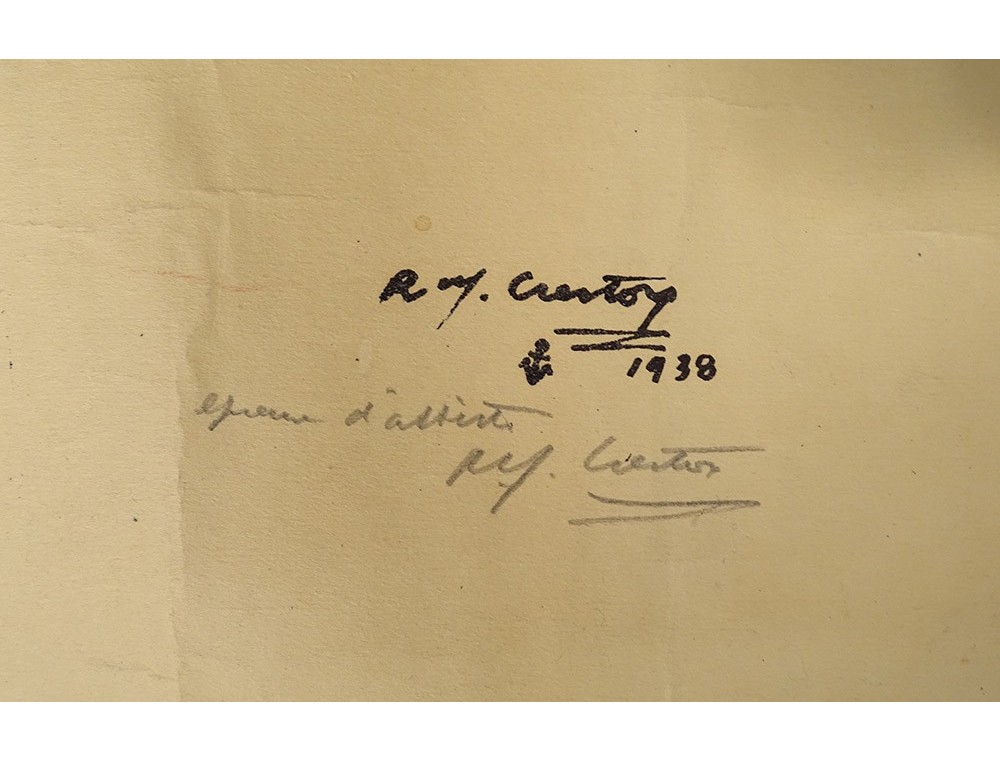 R. Y. Creston
1938
épreuve d'artiste
R. Y. Creston